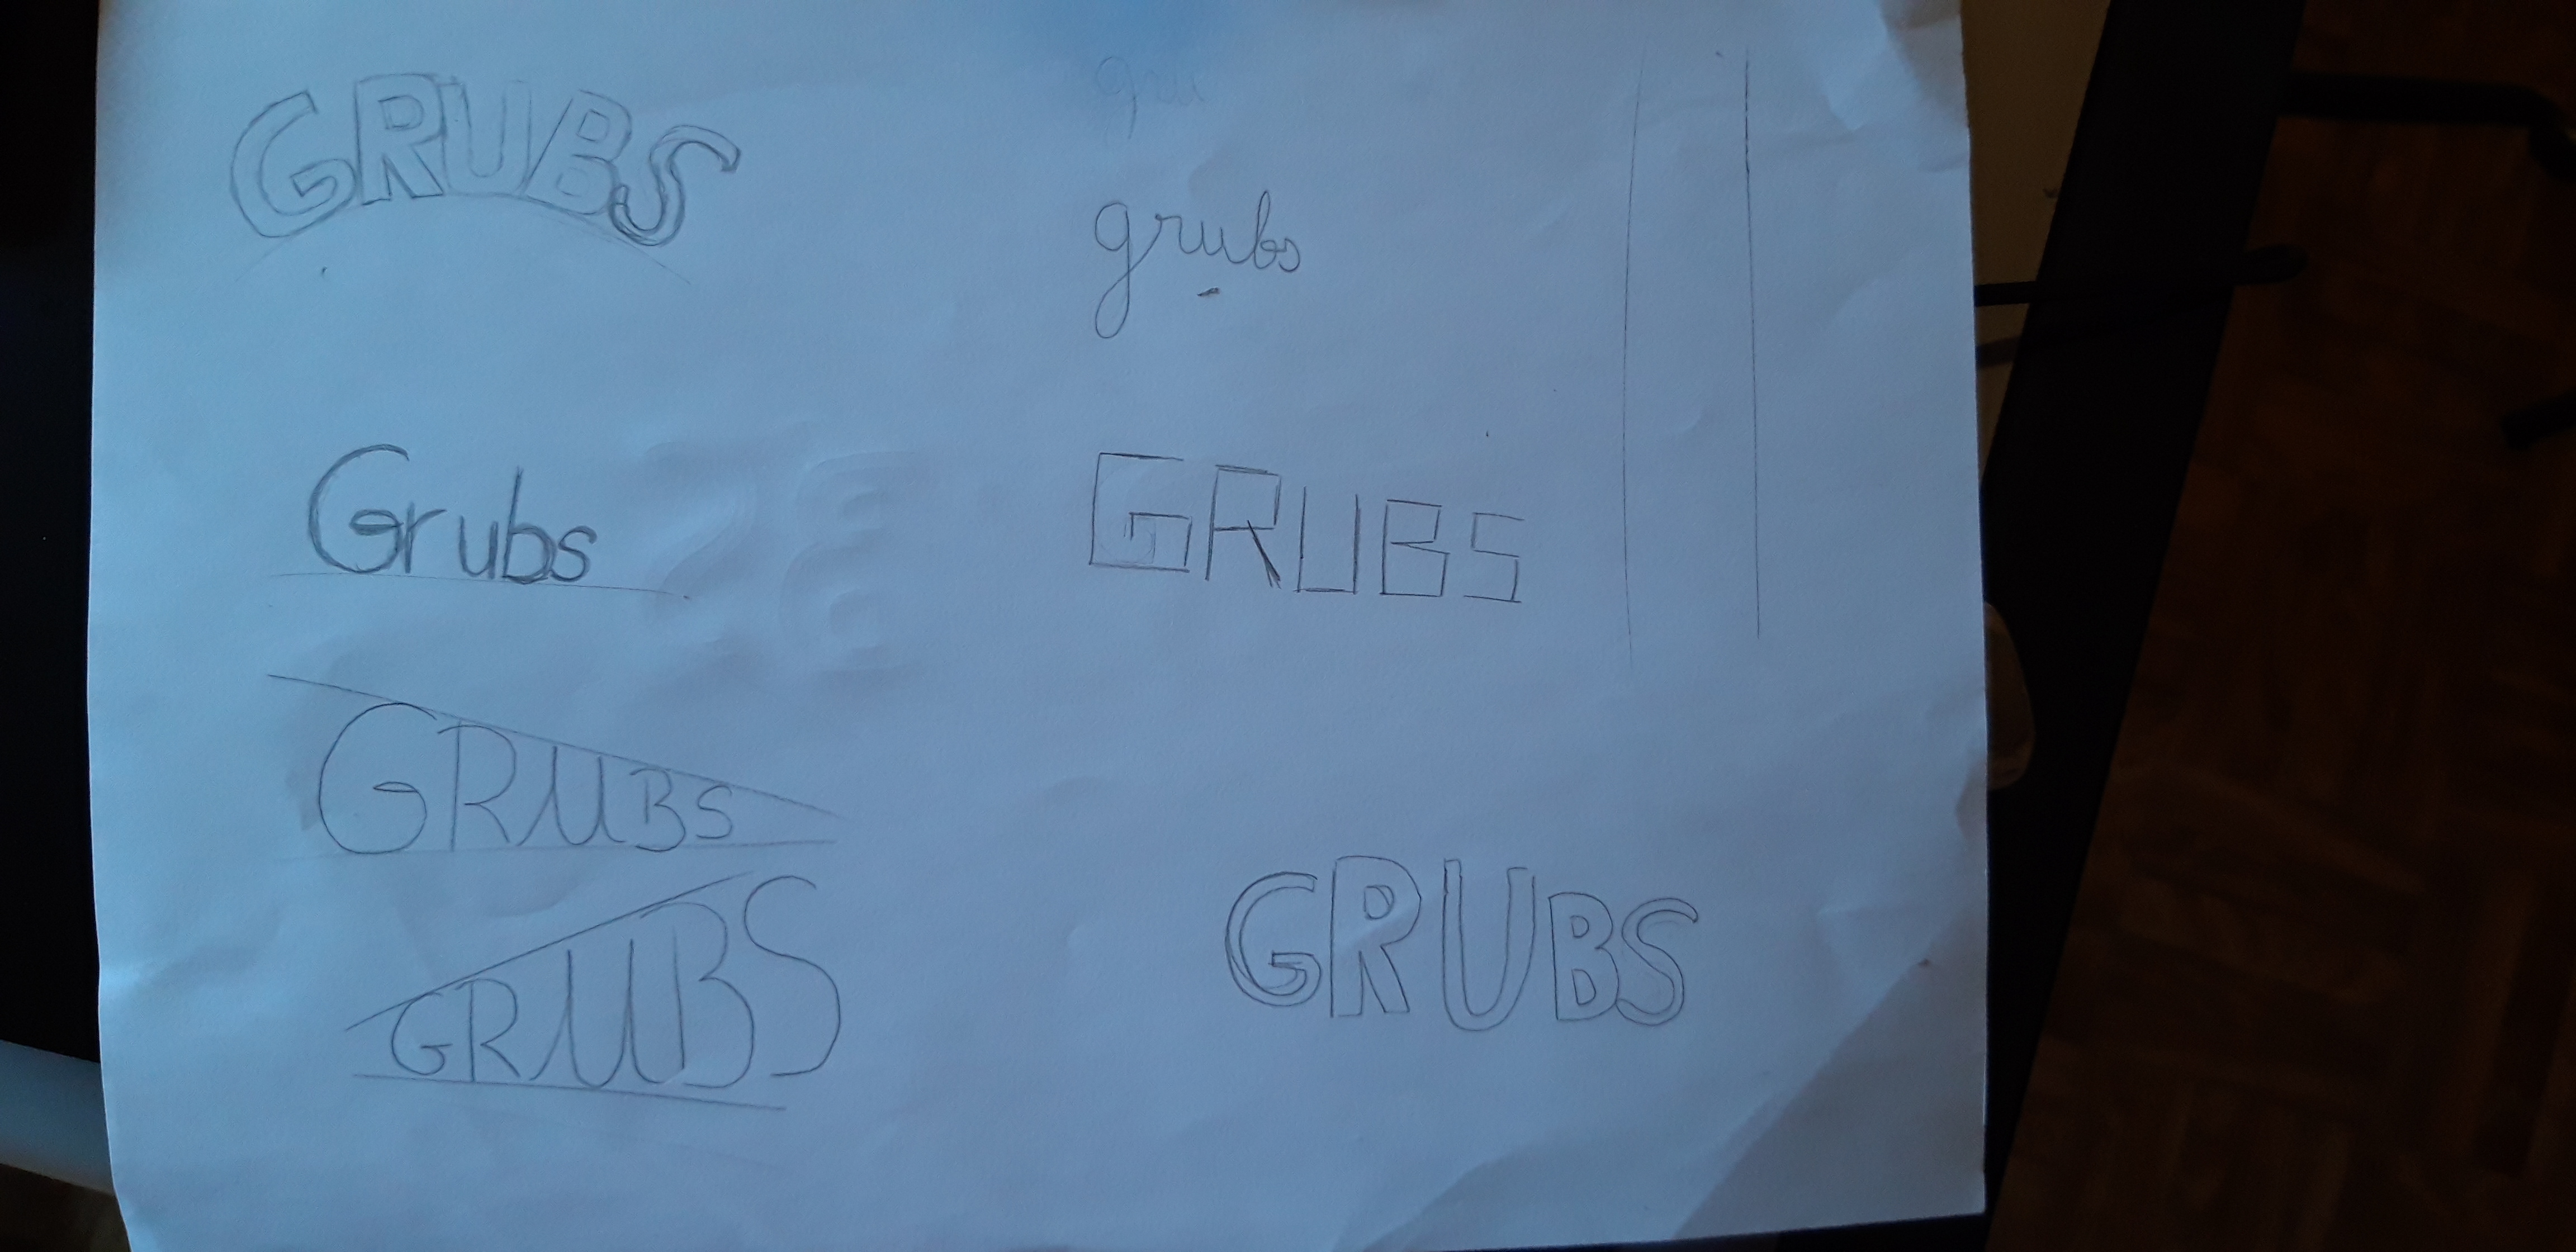 GRUBS
gru
grubs
Grubs
GRUBS
GRUBS
GRUBS
GRUBS